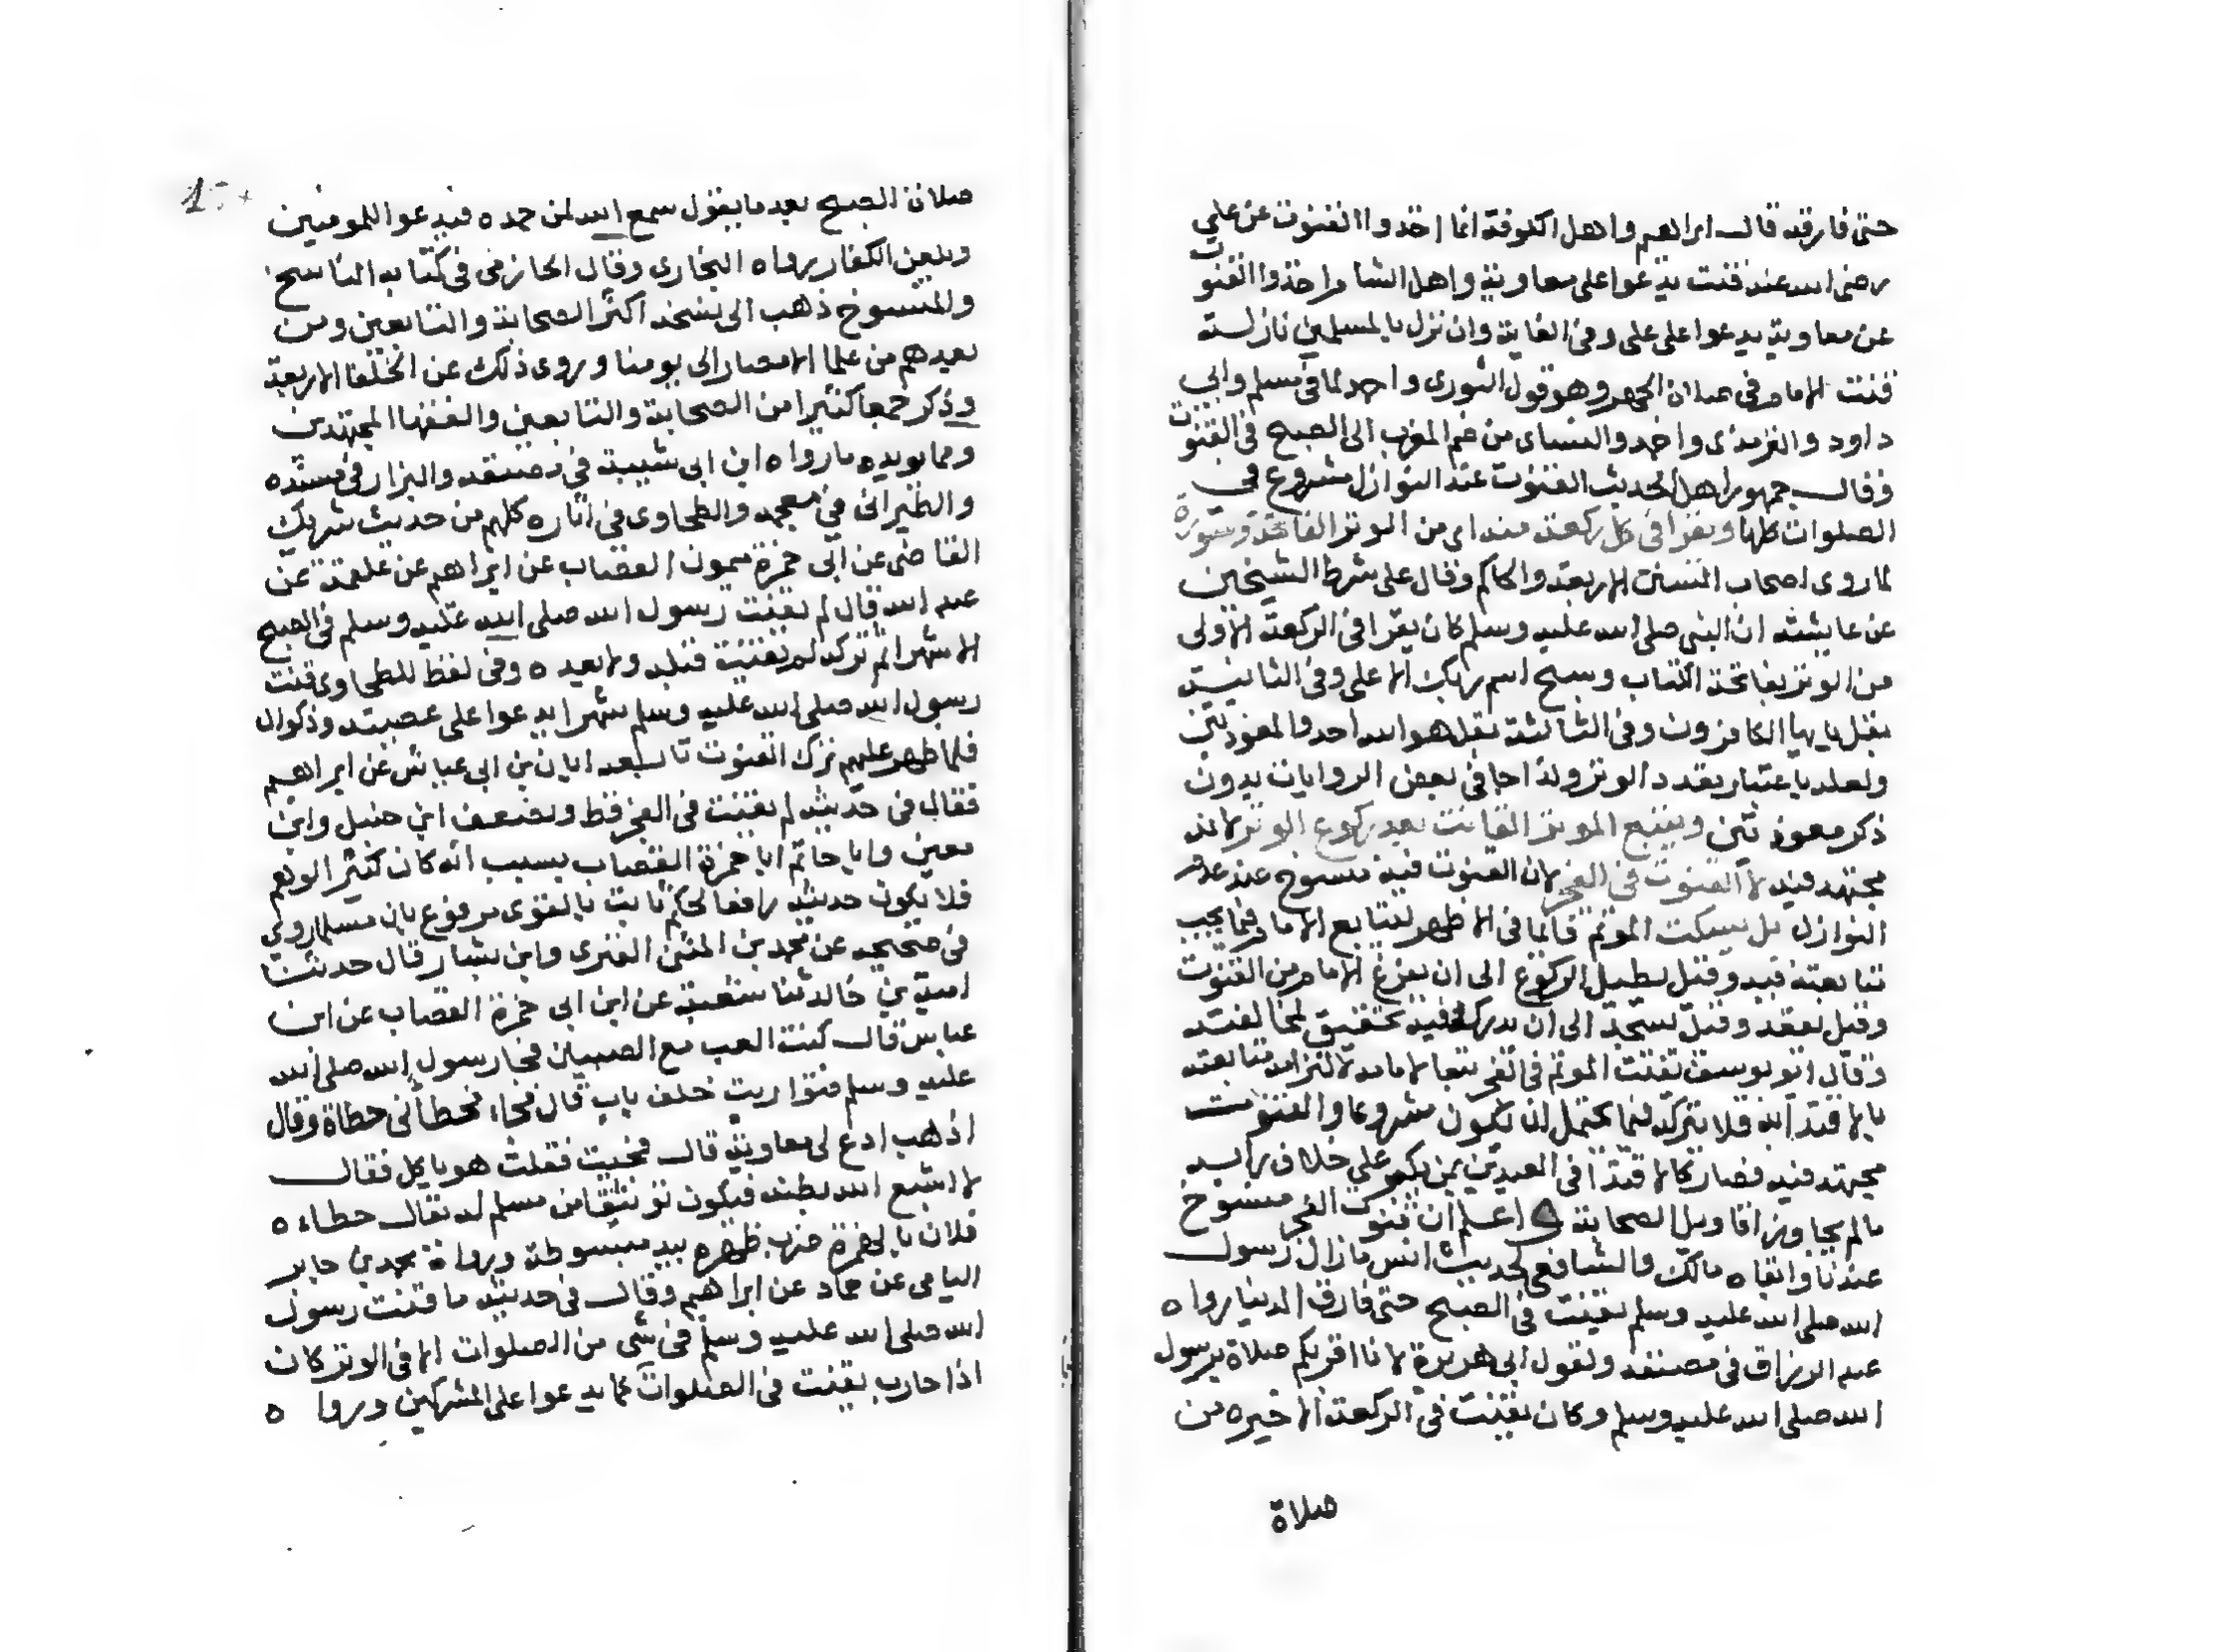 حتى فارقه قال ابراهيم واهل الكوفة انما اخذوا القنوت عن علي
رضى الله عنه قنت يدعوا على معاوية واهل الشام اخذوا القنوت
عن معاوية يدعوا على على وفى الغاية وان نزل بالمسلمين نازلة
قنت الامام فى صلاة الجهر وهو قول الثورى واحمد لما فى مسلم وابى
داود والترمذى واحمد والنساى من ضم المغرب الى الصبح فى القنوت
وقال جمهور اهل الحديث القنوت عند النوازل مشروع فى
الصلوات كلها ويقرا فى كل ركعة منه اى من الوتر الفاتحة وسورة
لما روى اصحاب السنن الاربعة والحاكم وقال على شرط الشيخين
عن عايشة ان النبى صلى الله عليه وسلم كان يقرا فى الركعة الاولى
من الوتر بفاتحة الكتاب وسبح اسم ربك الاعلى وفى الثانية
بقل يايها الكافرون وفى الثالثة بقل هو الله احد والمعوذتين
ولعله باعتبار تعدد الوتر ولذا جا فى بعض الروايات بدون
ذكر معوذتين ويتبع الموتم القانت بعد ركوع الوتر لانه
مجتهد فيه لا القنوت فى الفجر لان القنوت فيه منسوخ عند عدم
النوازل بل يسكت الموتم قائما فى الاظهر ليتابع الامام فيما يجب
متابعته فيه وقيل يطيل الركوع الى ان يفرغ الامام من القنوت
وقيل يقعد وقيل يسجد الى ان يدركه فيه تحقيق لمخالفته
وقال ابو يوسف يقنت الموتم فى الفجر تبعا لامامه لالتزامه متابعته
بالاقتدا به فلا يتركه فيما يحتمل ان يكون مشروعا والقنوت
مجتهد فيه فصار كالاقتدا فى العيدين بمن يكبر على خلاف رايه
مالم يجاوز اقاويل الصحابة اعلم ان قنوت الفجر منسوخ
عندنا وابقاه مالك والشافعى لحديث انس مازال رسول
الله صلى الله عليه وسلم يقنت فى الصبح حتى فارق الدنيا رواه
عبد الرزاق فى مصنفه ولقول ابى هريرة لانا اقربكم صلاة برسول
الله صلى الله عليه وسلم وكان يقنت فى الركعة الاخيرة من
صلاة
صلاة الصبح بعد ما يقول سمع الله لمن حمده فيدعوا للمومنين
ويلعن الكفار رواه البخارى وقال الحازمى فى كتابه الناسخ
والمنسوخ ذهب الى نسخه اكثر الصحابة والتابعين ومن
بعدهم من علما الامصار الى يومنا وروى ذلك عن الخلفا الاربعة
وذكر جمعا كثيرا من الصحابة والتابعين والفقها المجتهدين
ومما يويده مارواه ابن ابى شيبة فى مصنفه والبزار فى مسنده
والطبرانى فى معجمه والطحاوى فى اثاره كلهم من حديث شريك
القاضى عن ابى حمزة ميمون القصاب عن ابراهيم عن علقمة عن
عبد الله قال لم يقنت رسول الله صلى الله عليه وسلم فى الصبح
الا شهرا ثم تركه لم يقنت قبله ولا بعده وفى لفظ للطحاوى قنت
رسول الله صلى الله عليه وسلم شهرا يدعوا على عصية وذكوان
فلما ظهر عليهم ترك القنوت تابعه ابان بن ابى عياش عن ابراهيم
فقال فى حديثه لم يقنت فى الفجر قط وتضعيف ابن حنبل وابن
معين وابا حاتم ابا حمزة القصاب بسبب انه كان كثير الوهم
فلا يكون حديثه رافعا لحكم ثابت بالقوى مرفوع بان مسلما روى
فى صحيحه عن محمد بن المثنى العنزى وابن بشار قال حدثنا
امية بن خالد ثنا شعبة عن ابن ابى حمزة القصاب عن ابن
عباس قال كنت العب مع الصبيان فجا رسول الله صلى الله
عليه وسلم فتواريت خلف باب قال فجاء فحطأنى حطاة وقال
اذهب ادع لى معاوية قال فجيت فقلت هو ياكل فقال
لا اشبع الله بطنه فيكون توثيقا من مسلم له يقال حطاه
فلان بالهمزة ضرب ظهره بيد مبسوطة ورواه محمد بن جابر
اليامى عن حماد عن ابراهيم وقال فى حديثه ما قنت رسول
الله صلى الله عليه وسلم فى شى من الصلوات الا فى الوتر كان
اذا حارب يقنت فى الصلوات كلها يدعوا على المشركين ورواه